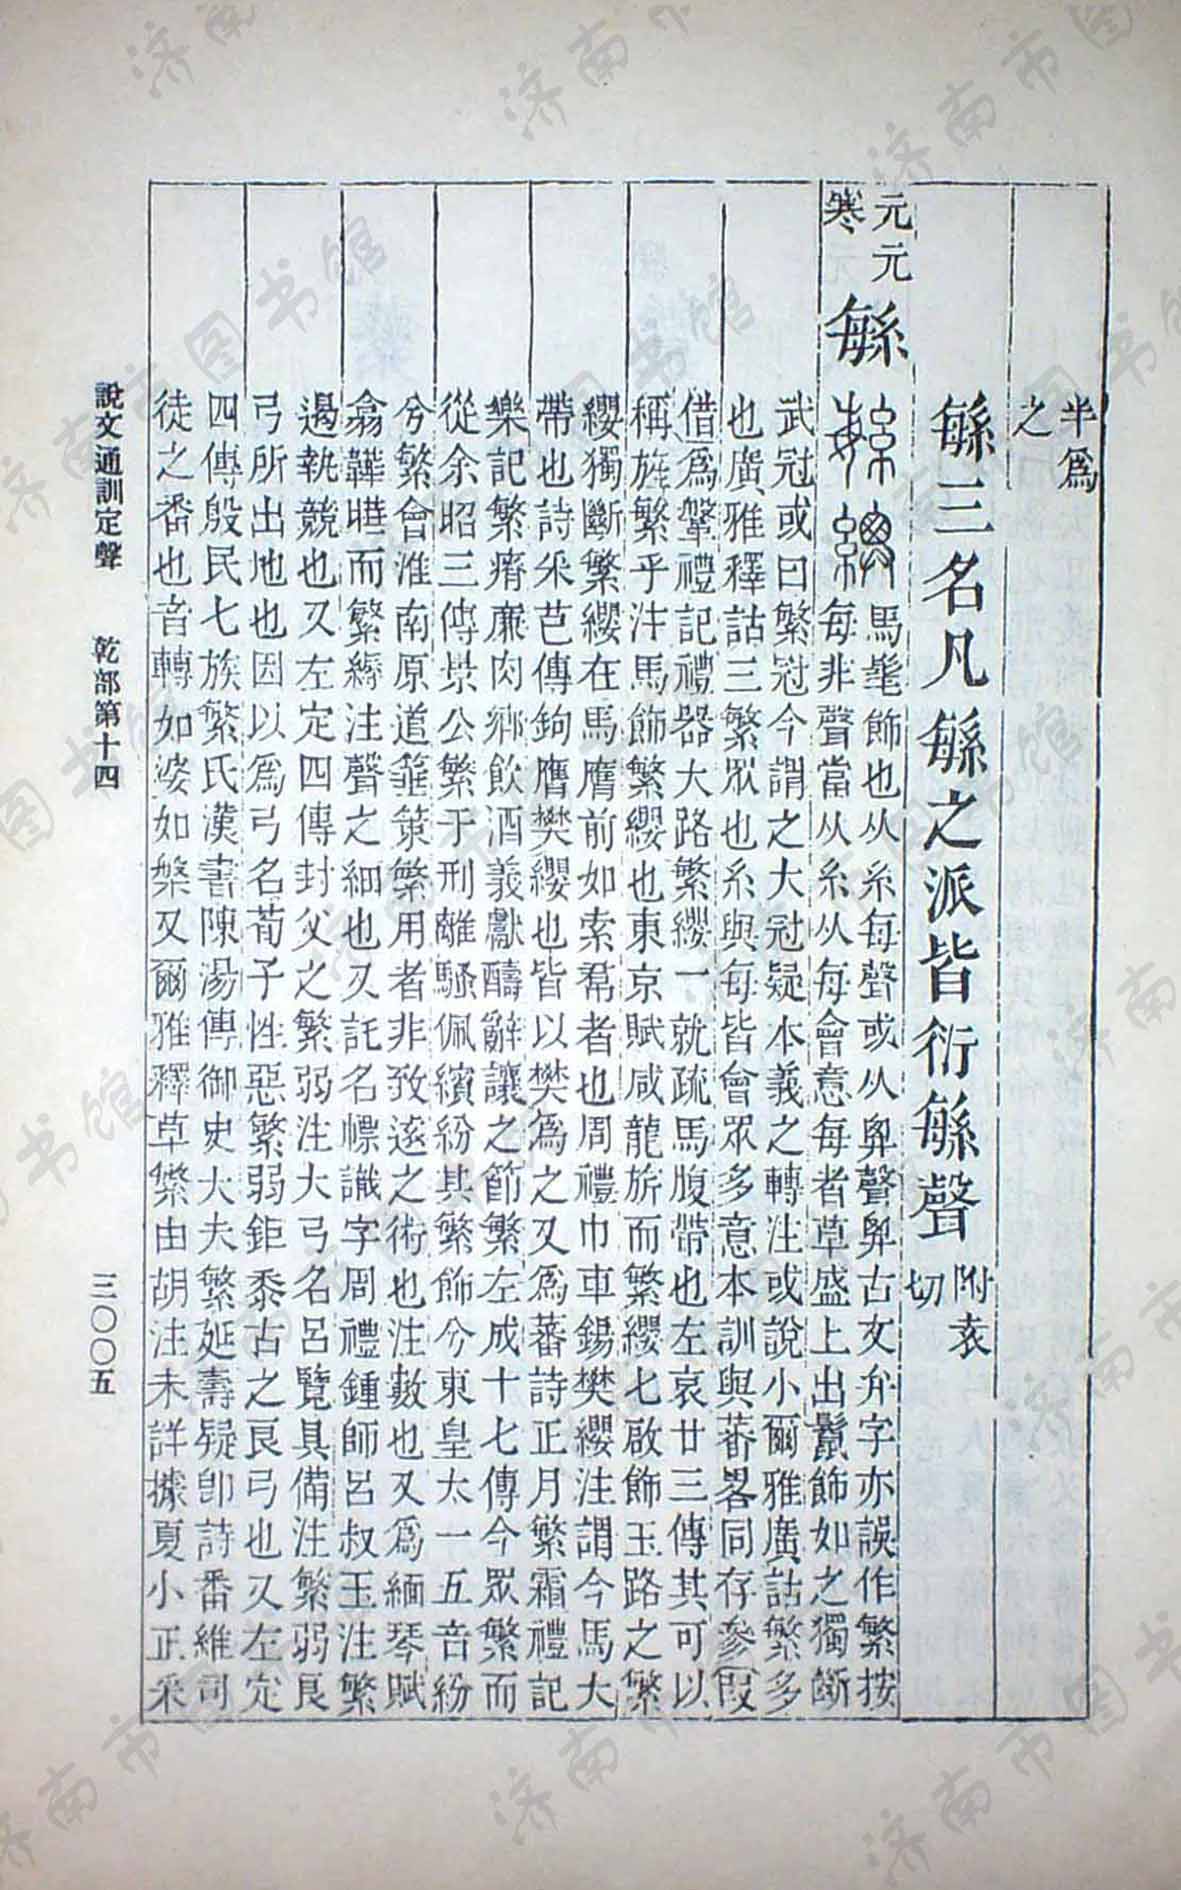 半爲
之
緐三名凡緐之派皆衍緐聲
附袁
切
元元
寒
緐
馬髦飾也从糸每聲或从𢍏聲𢍏古文弁字亦誤作繁按
每非聲當从糸从每會意每者草盛上出鬣飾如之獨斷
武冠或曰繁冠今謂之大冠疑本義之轉注或說小爾雅廣詁繁多
也廣雅釋詁三繁眾也糸與每皆會眾多意本訓與蕃畧同存參叚
借爲鞶禮記禮器大路繁纓一就疏馬腹帶也左哀廿三傳其可以
稱旌繁乎注馬飾繁纓也東京賦咸龍旂而繁纓七啟飾玉路之繁
纓獨斷繁纓在馬膺前如索帬者也周禮巾車錫樊纓注謂今馬大
帶也詩采芑傳鉤膺樊纓也皆以樊爲之又爲蕃詩正月繁霜禮記
樂記繁瘠廉肉鄉飲酒義獻酬辭讓之節繁左成十七傳今眾繁而
從余昭三傳景公繁于刑離騷佩繽紛其繁飾兮東皇太一五音紛
兮繁會淮南原道箠策繁用者非致遠之術也注數也又爲緬琴賦
翕韡曄而繁縟注聲之細也又託名幖識字周禮鍾師呂叔玉注繁
遏執競也又左定四傳封父之繁弱注大弓名呂覽具備注繁弱良
弓所出地也因以爲弓名荀子性惡繁弱鉅黍古之良弓也又左定
四傳殷民七族繁氏漢書陳湯傳御史大夫繁延壽疑卽詩番維司
徒之番也音轉如婆如槃又爾雅釋草繁由胡注未詳據夏小正采
說文通訓定聲　乾部第十四　三〇〇五